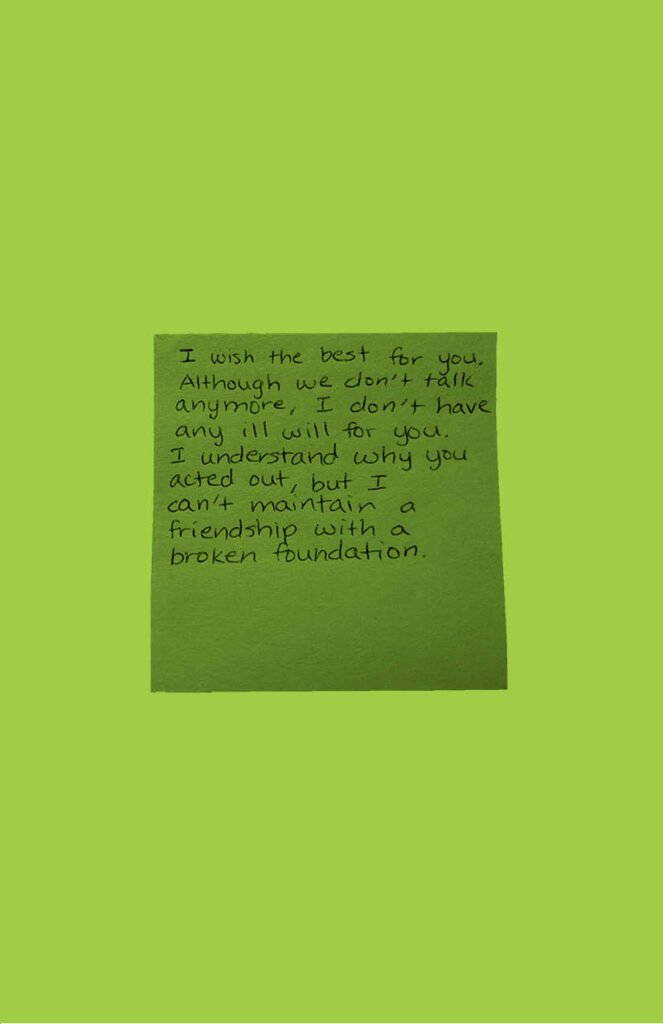 I wish the best for you.
Although we don't talk
anymore, I don't have
any ill will for you.
I understand why you
acted out, but I
can't maintain a
friendship with a
broken foundation.